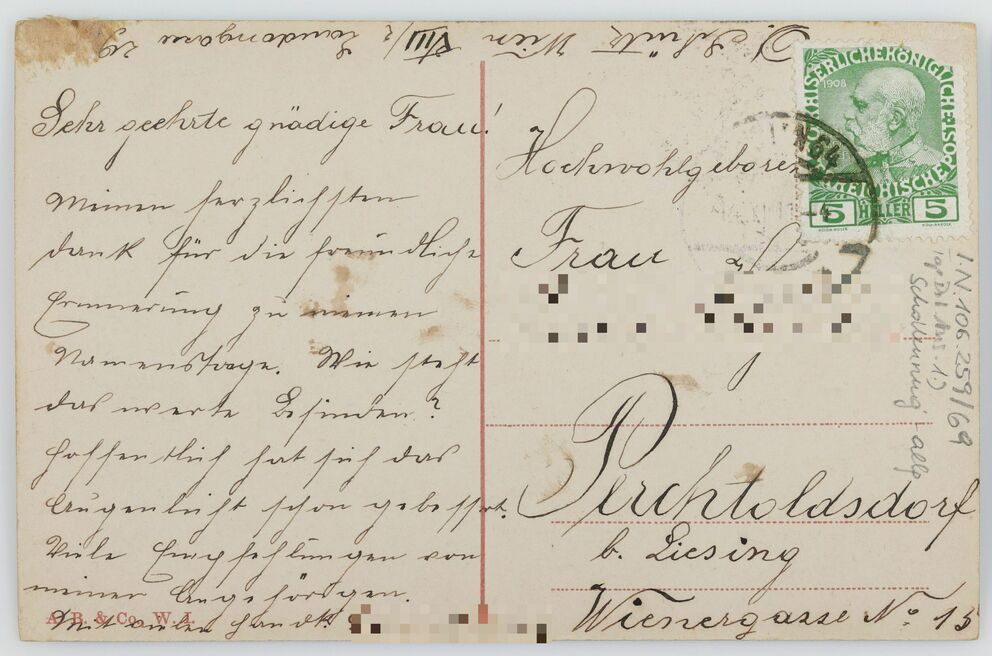 D. Schütz Wien VIII/2 Laudongasse 29
Sehr geehrte gnädige Frau!
Meinen herzlichsten
dank für die freundliche
Erinnerung zu meinem
Namenstage. Wie steht
das werte Befinden?
Hoffentlich hat sich das
Augenlicht schon gebessert.
Viele Empfehlungen von
meinen Angehörigen.
Mit
A. B. & Co. W. I.
Hochwohlgeboren
Frau
Perchtoldsdorf
b. Liesing
Wienergasse No. 15
KAISERLICHE KÖNIGLICHE ÖSTERREICHISCHE POST
1908
5 HELLER 5
I N 106 259/69